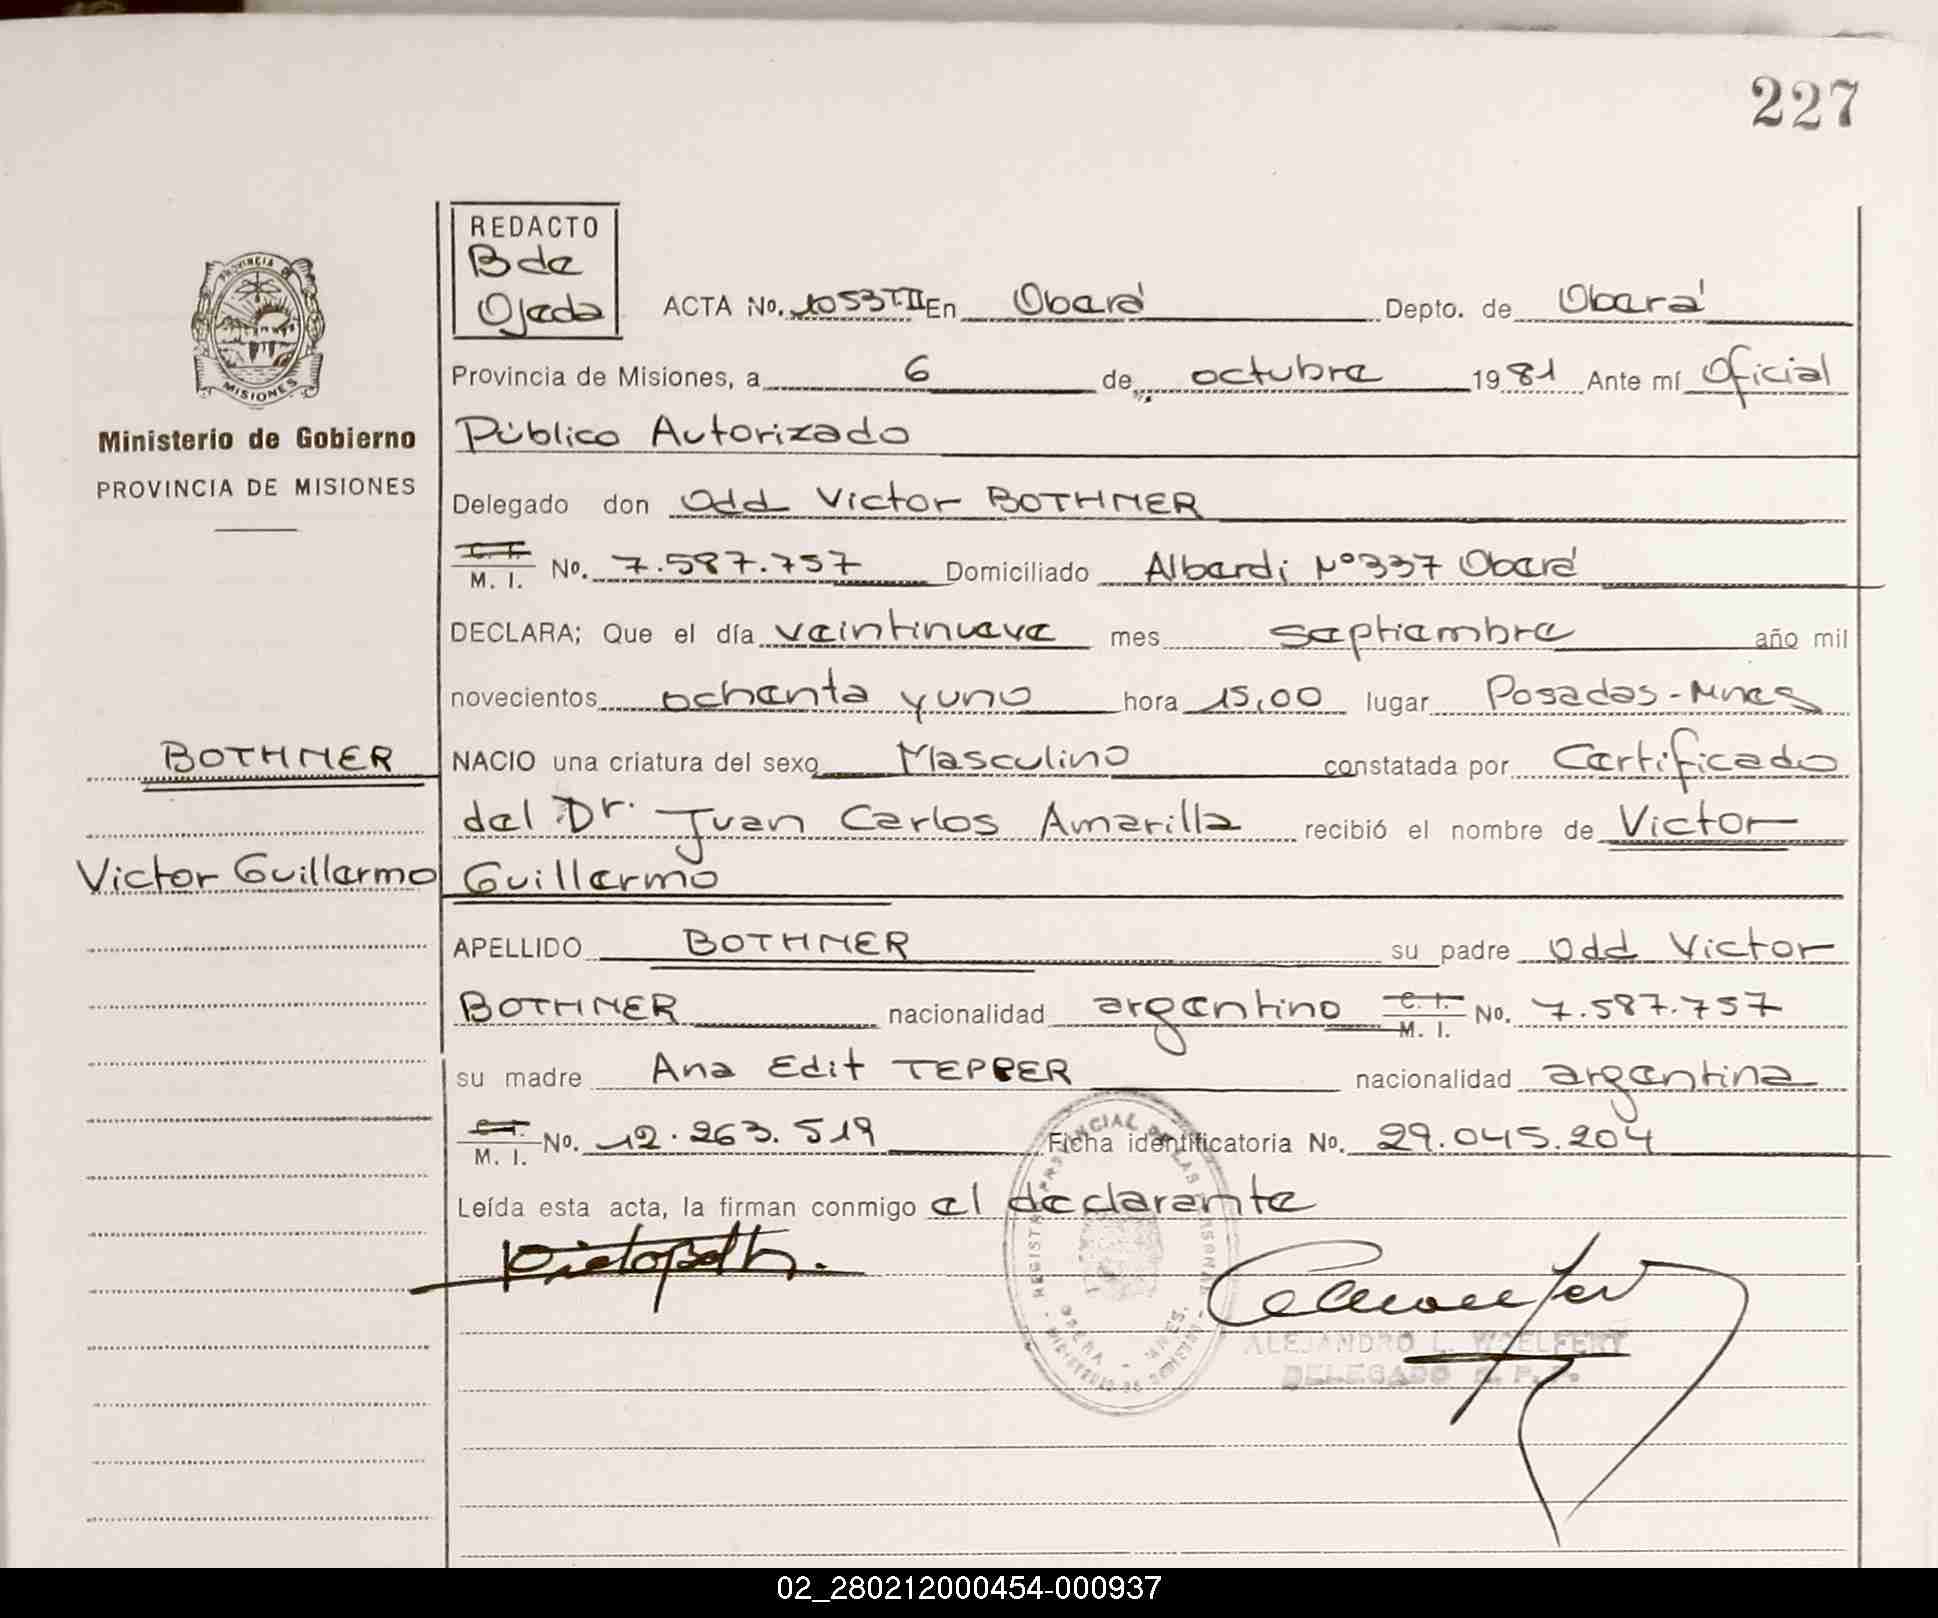 227
REDACTO
B de
Ojeda
ACTA No. 1053 T.II En Oberá Depto. de Oberá
Provincia de Misiones, a 6 de octubre 1981 Ante mí Oficial
Público Autorizado
PROVINCIA DE MISIONES
Ministerio de Gobierno
PROVINCIA DE MISIONES
Delegado don Odd Victor BOTHNER
C. I. M. I. No. 7.587.757 Domiciliado Alberdi Nº 337 Oberá
DECLARA; Que el día veintinueve mes septiembre año mil
novecientos ochenta y uno hora 15,00 lugar Posadas-Mnes
BOTHNER
NACIO una criatura del sexo Masculino constatada por Certificado
del Dr. Juan Carlos Amarilla recibió el nombre de Victor
Victor Guillermo
Guillermo
APELLIDO BOTHNER su padre Odd Victor
BOTHNER nacionalidad argentino C. I. M. I. No. 7.587.757
su madre Ana Edit TEPPER nacionalidad argentina
C. I. M. I. No. 12.263.519 Ficha identificatoria No. 29.045.204
Leída esta acta, la firman conmigo el declarante
ALEJANDRO L. WOELFERT
DELEGADO
02_280212000454-000937